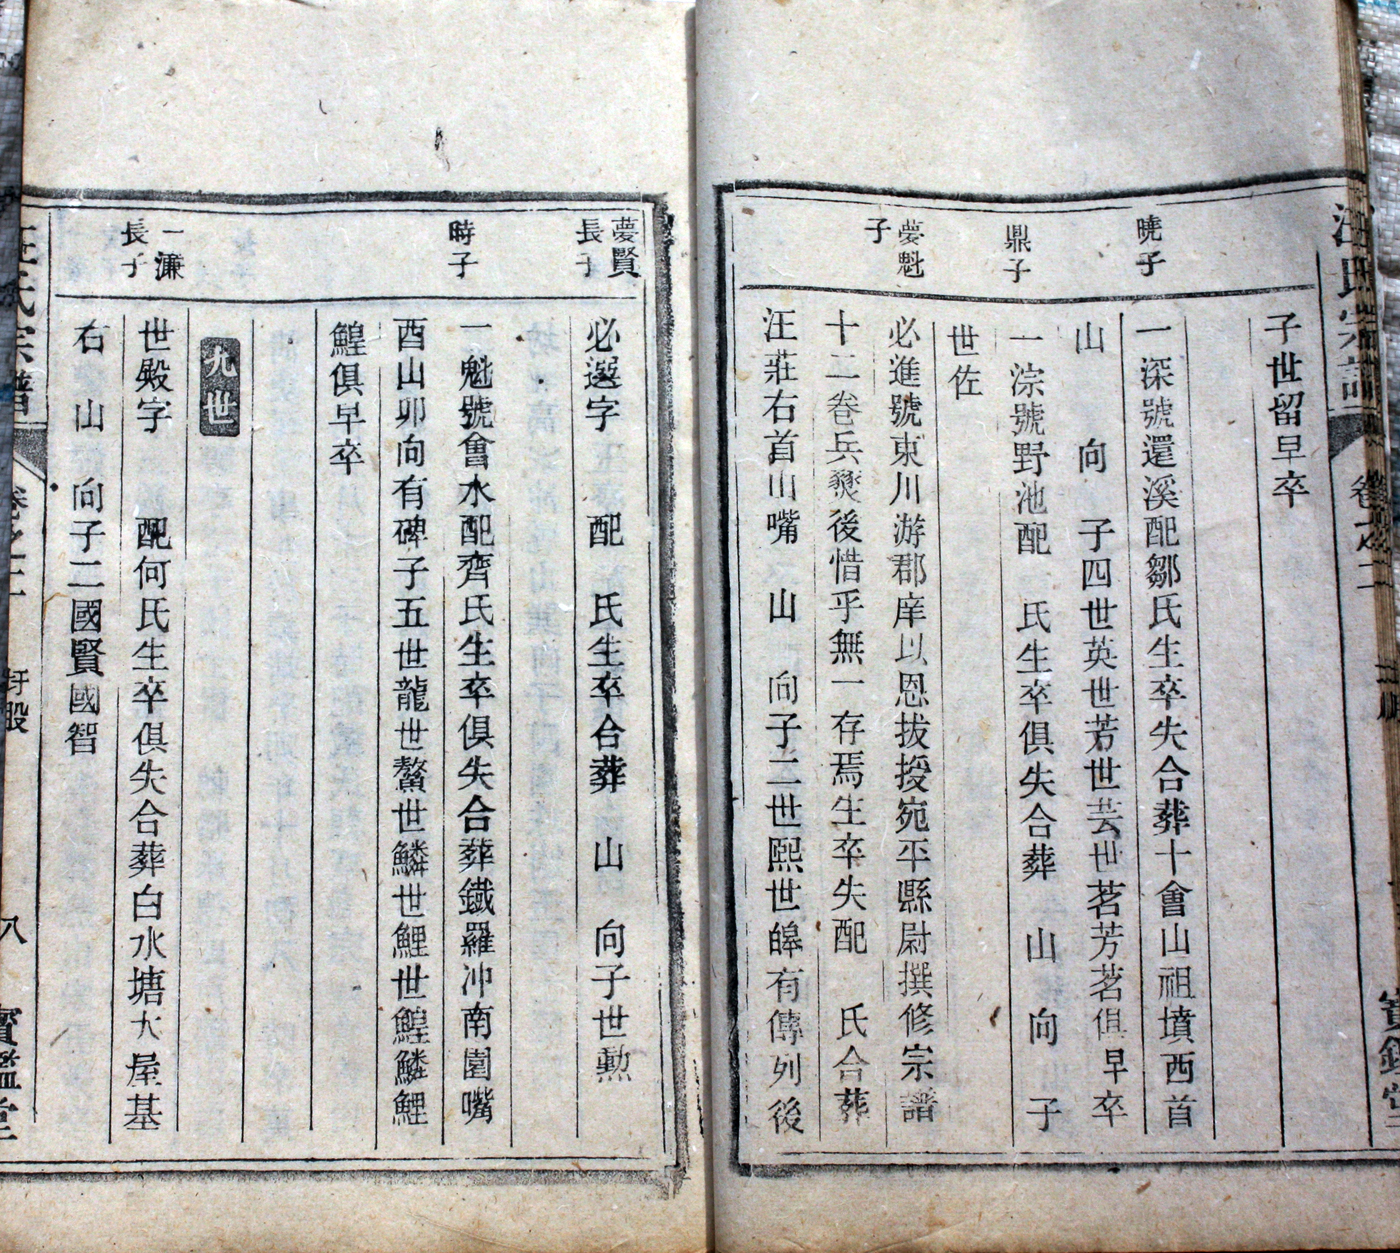 汪氏宗譜 卷之二
子世留早卒
曉子
一深號還溪配鄒氏生卒失合葬十會山祖墳西首
山 向 子四世英世芳世芸世茗芳茗俱早卒
鼎子
一淙號野池配 氏生卒俱失合葬 山 向 子
世佐
夢魁
子
必進號東川游郡庠以恩拔授宛平縣尉撰修宗譜
十二卷兵燹後惜乎無一存焉生卒失配 氏合葬
汪莊右首山嘴 山 向子二世熙世皞有傳列後
夢賢
長子
必選字 配 氏生卒合葬 山 向子世勲
時子
一魁號會水配齊氏生卒俱失合葬鐵羅冲南園嘴
酉山卯向有碑子五世龍世鰲世鱗世鯉世鰉鱗鯉
鰉俱早卒
九世
一濂
長子
世殿字 配何氏生卒俱失合葬白水塘大屋基
右 山 向子二國賢國智
汪氏宗譜 卷之二 八 寳鑑堂